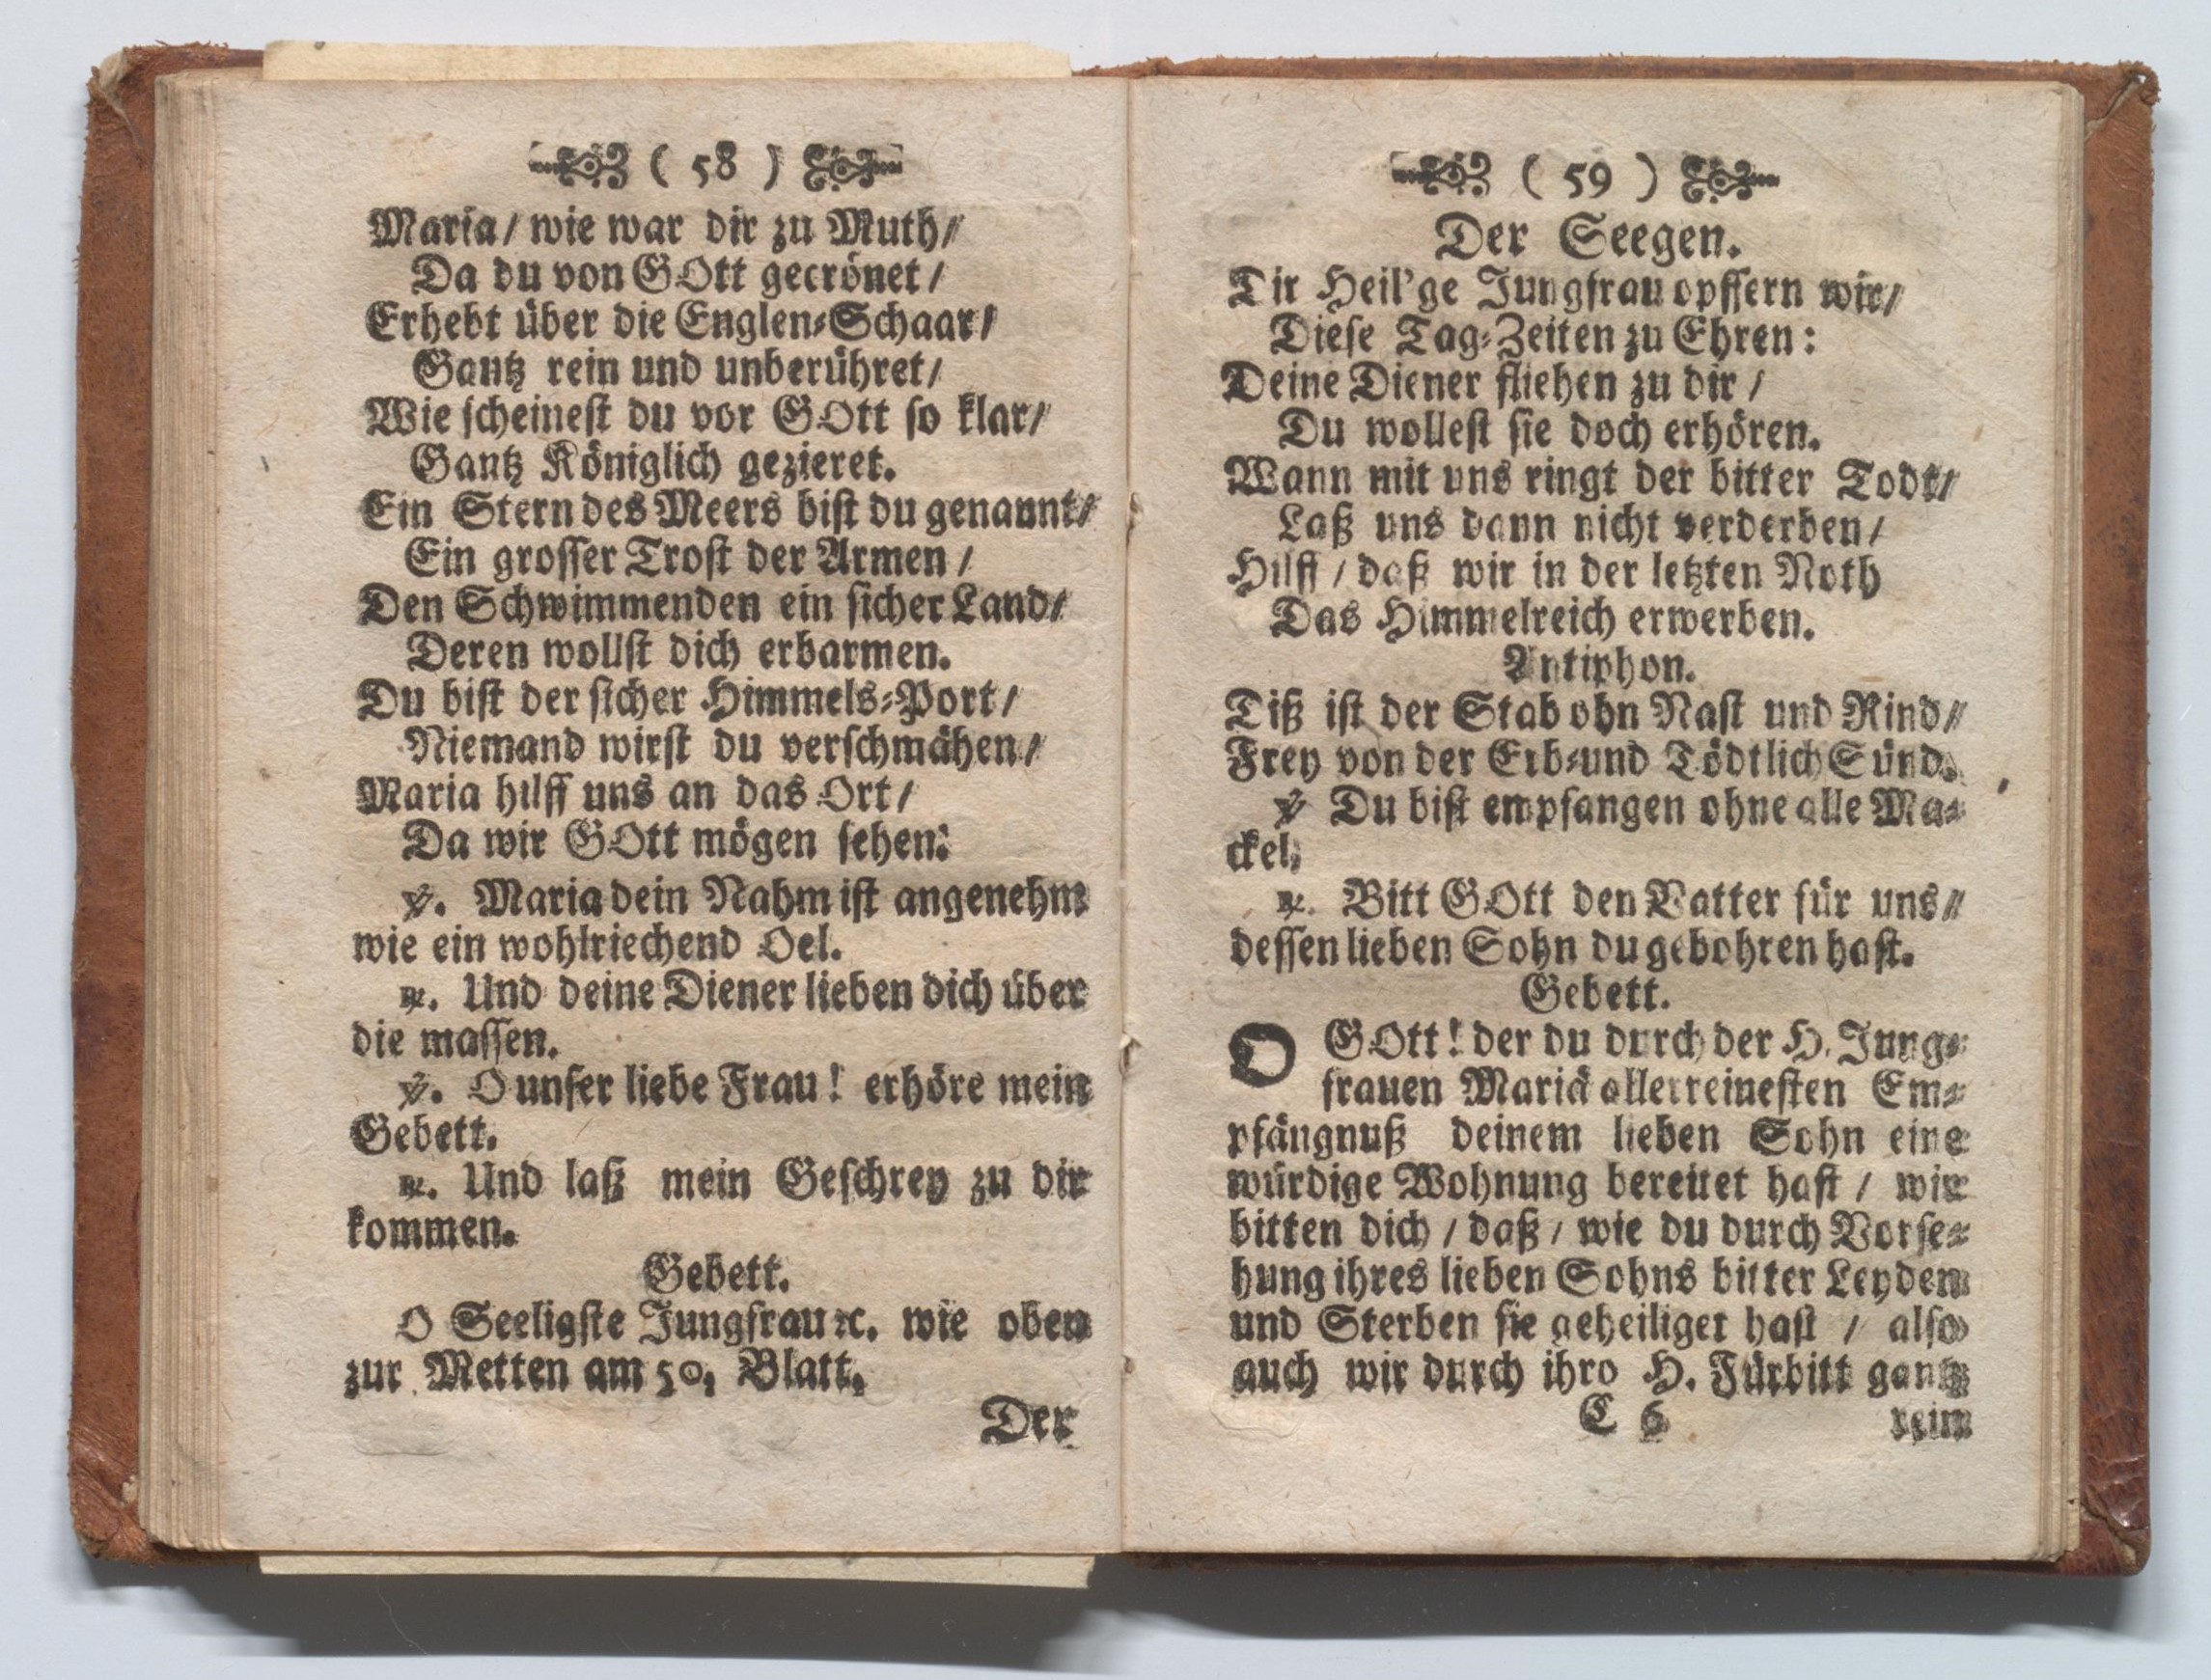 ( 58 )
Maria / wie war dir zu Muth /
Da du von GOtt gecrönet /
Erhebt über die Englen-Schaar /
Gantz rein und unberühret /
Wie scheinest du vor GOtt so klar /
Gantz Königlich gezieret.
Ein Stern des Meers bist du genannt /
Ein grosser Trost der Armen /
Den Schwimmenden ein sicher Land /
Deren wollst dich erbarmen.
Du bist der sicher Himmels-Port /
Niemand wirst du verschmähen /
Maria hilff uns an das Ort /
Da wir GOtt mögen sehen:
℣. Maria dein Nahm ist angenehm
wie ein wohlriechend Oel.
℟. Und deine Diener lieben dich über
die massen.
℣. O unser liebe Frau! erhöre mein
Gebett.
℟. Und laß mein Geschrey zu dir
kommen.
Gebett.
O Seeligste Jungfrau ꝛc. wie oben
zur Metten am 50. Blatt.
Der
( 59 )
Der Seegen.
Dir Heil'ge Jungfrau opffern wir /
Diese Tag-Zeiten zu Ehren:
Deine Diener fliehen zu dir /
Du wollest sie doch erhören.
Wann mit uns ringt der bitter Todt /
Laß uns dann nicht verderben /
Hilff / daß wir in der letzten Noth
Das Himmelreich erwerben.
Antiphon.
Diß ist der Stab ohn Nast und Rind /
Frey von der Erb-und Tödtlich Sünd.
℣ Du bist empfangen ohne alle Ma-
ckel.
℟. Bitt GOtt den Vatter für uns /
dessen lieben Sohn du gebohren hast.
Gebett.
O GOtt! der du durch der H. Jung-
frauen Mariä allerreinesten Em-
pfängnuß deinem lieben Sohn eine
würdige Wohnung bereitet hast / wir
bitten dich / daß / wie du durch Vorse-
hung ihres lieben Sohns bitter Leyden
und Sterben sie geheiliget hast / also
auch wir durch ihro H. Fürbitt gantz
C 6 rein